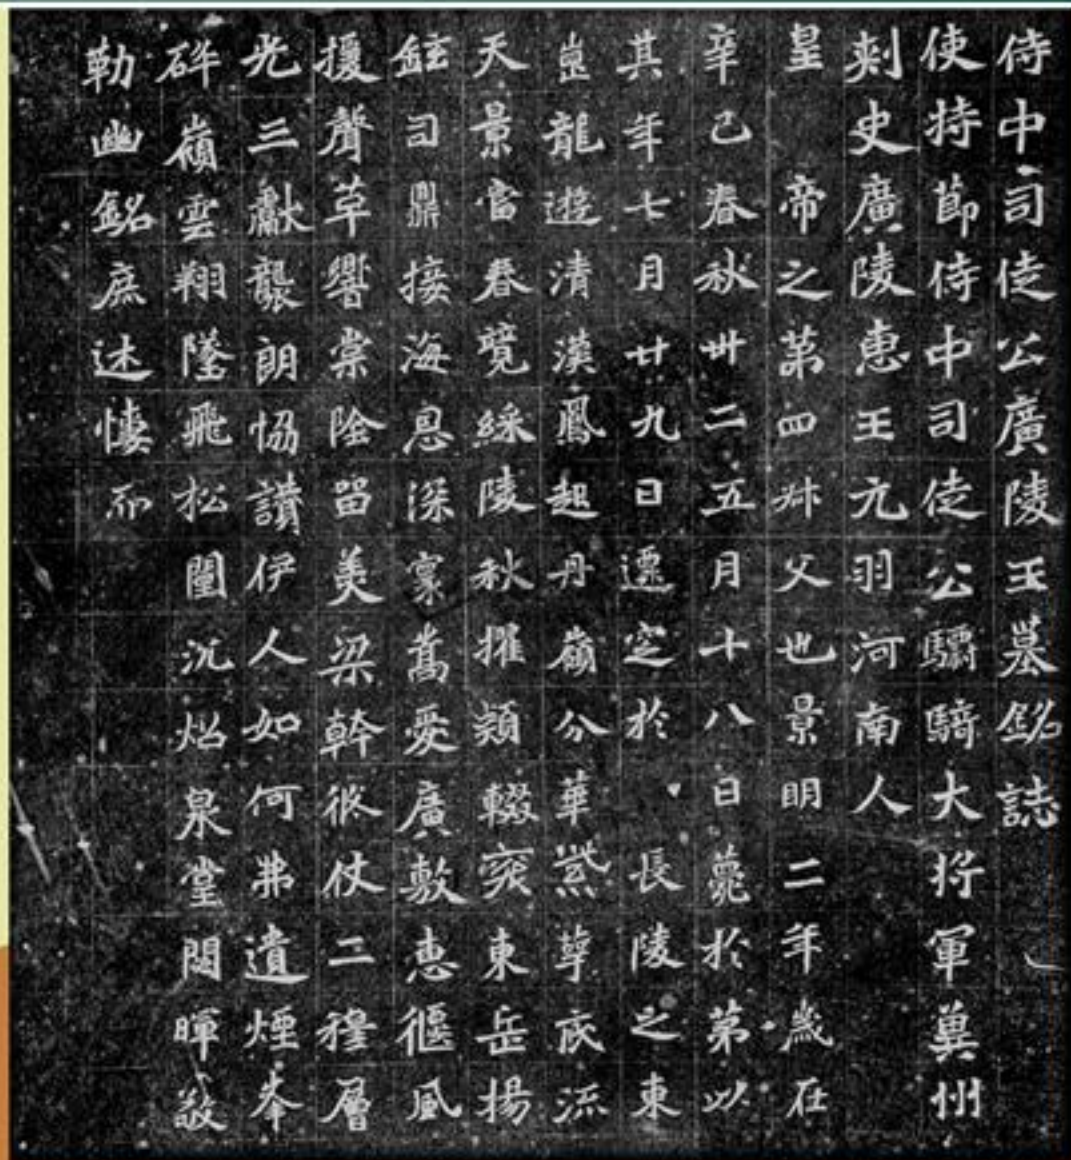 侍中司徒公廣陵王墓銘誌
使持節侍中司徒公驃騎大將軍冀州
刺史廣陵惠王元羽河南人
皇帝之第四叔父也景明二年歲在
辛巳春秋卅二五月十八日薨於第以
其年七月廿九日遷窆於長陵之東
崗龍遊清漢鳳起丹嶺分華紫萼底流
天景當春竟綵陵秋擢穎輟突東岳揚
鉉司鼎接海恩深寰嵩愛廣敷惠偃風
援聲草響棠陰留美梁幹後仗二穆層
光三獻襲朗協讚伊人如何弗遺煙峯
碎嶺雲翔墜飛松闈沉炤泉堂閟暉敬
勒幽銘庶述悽而